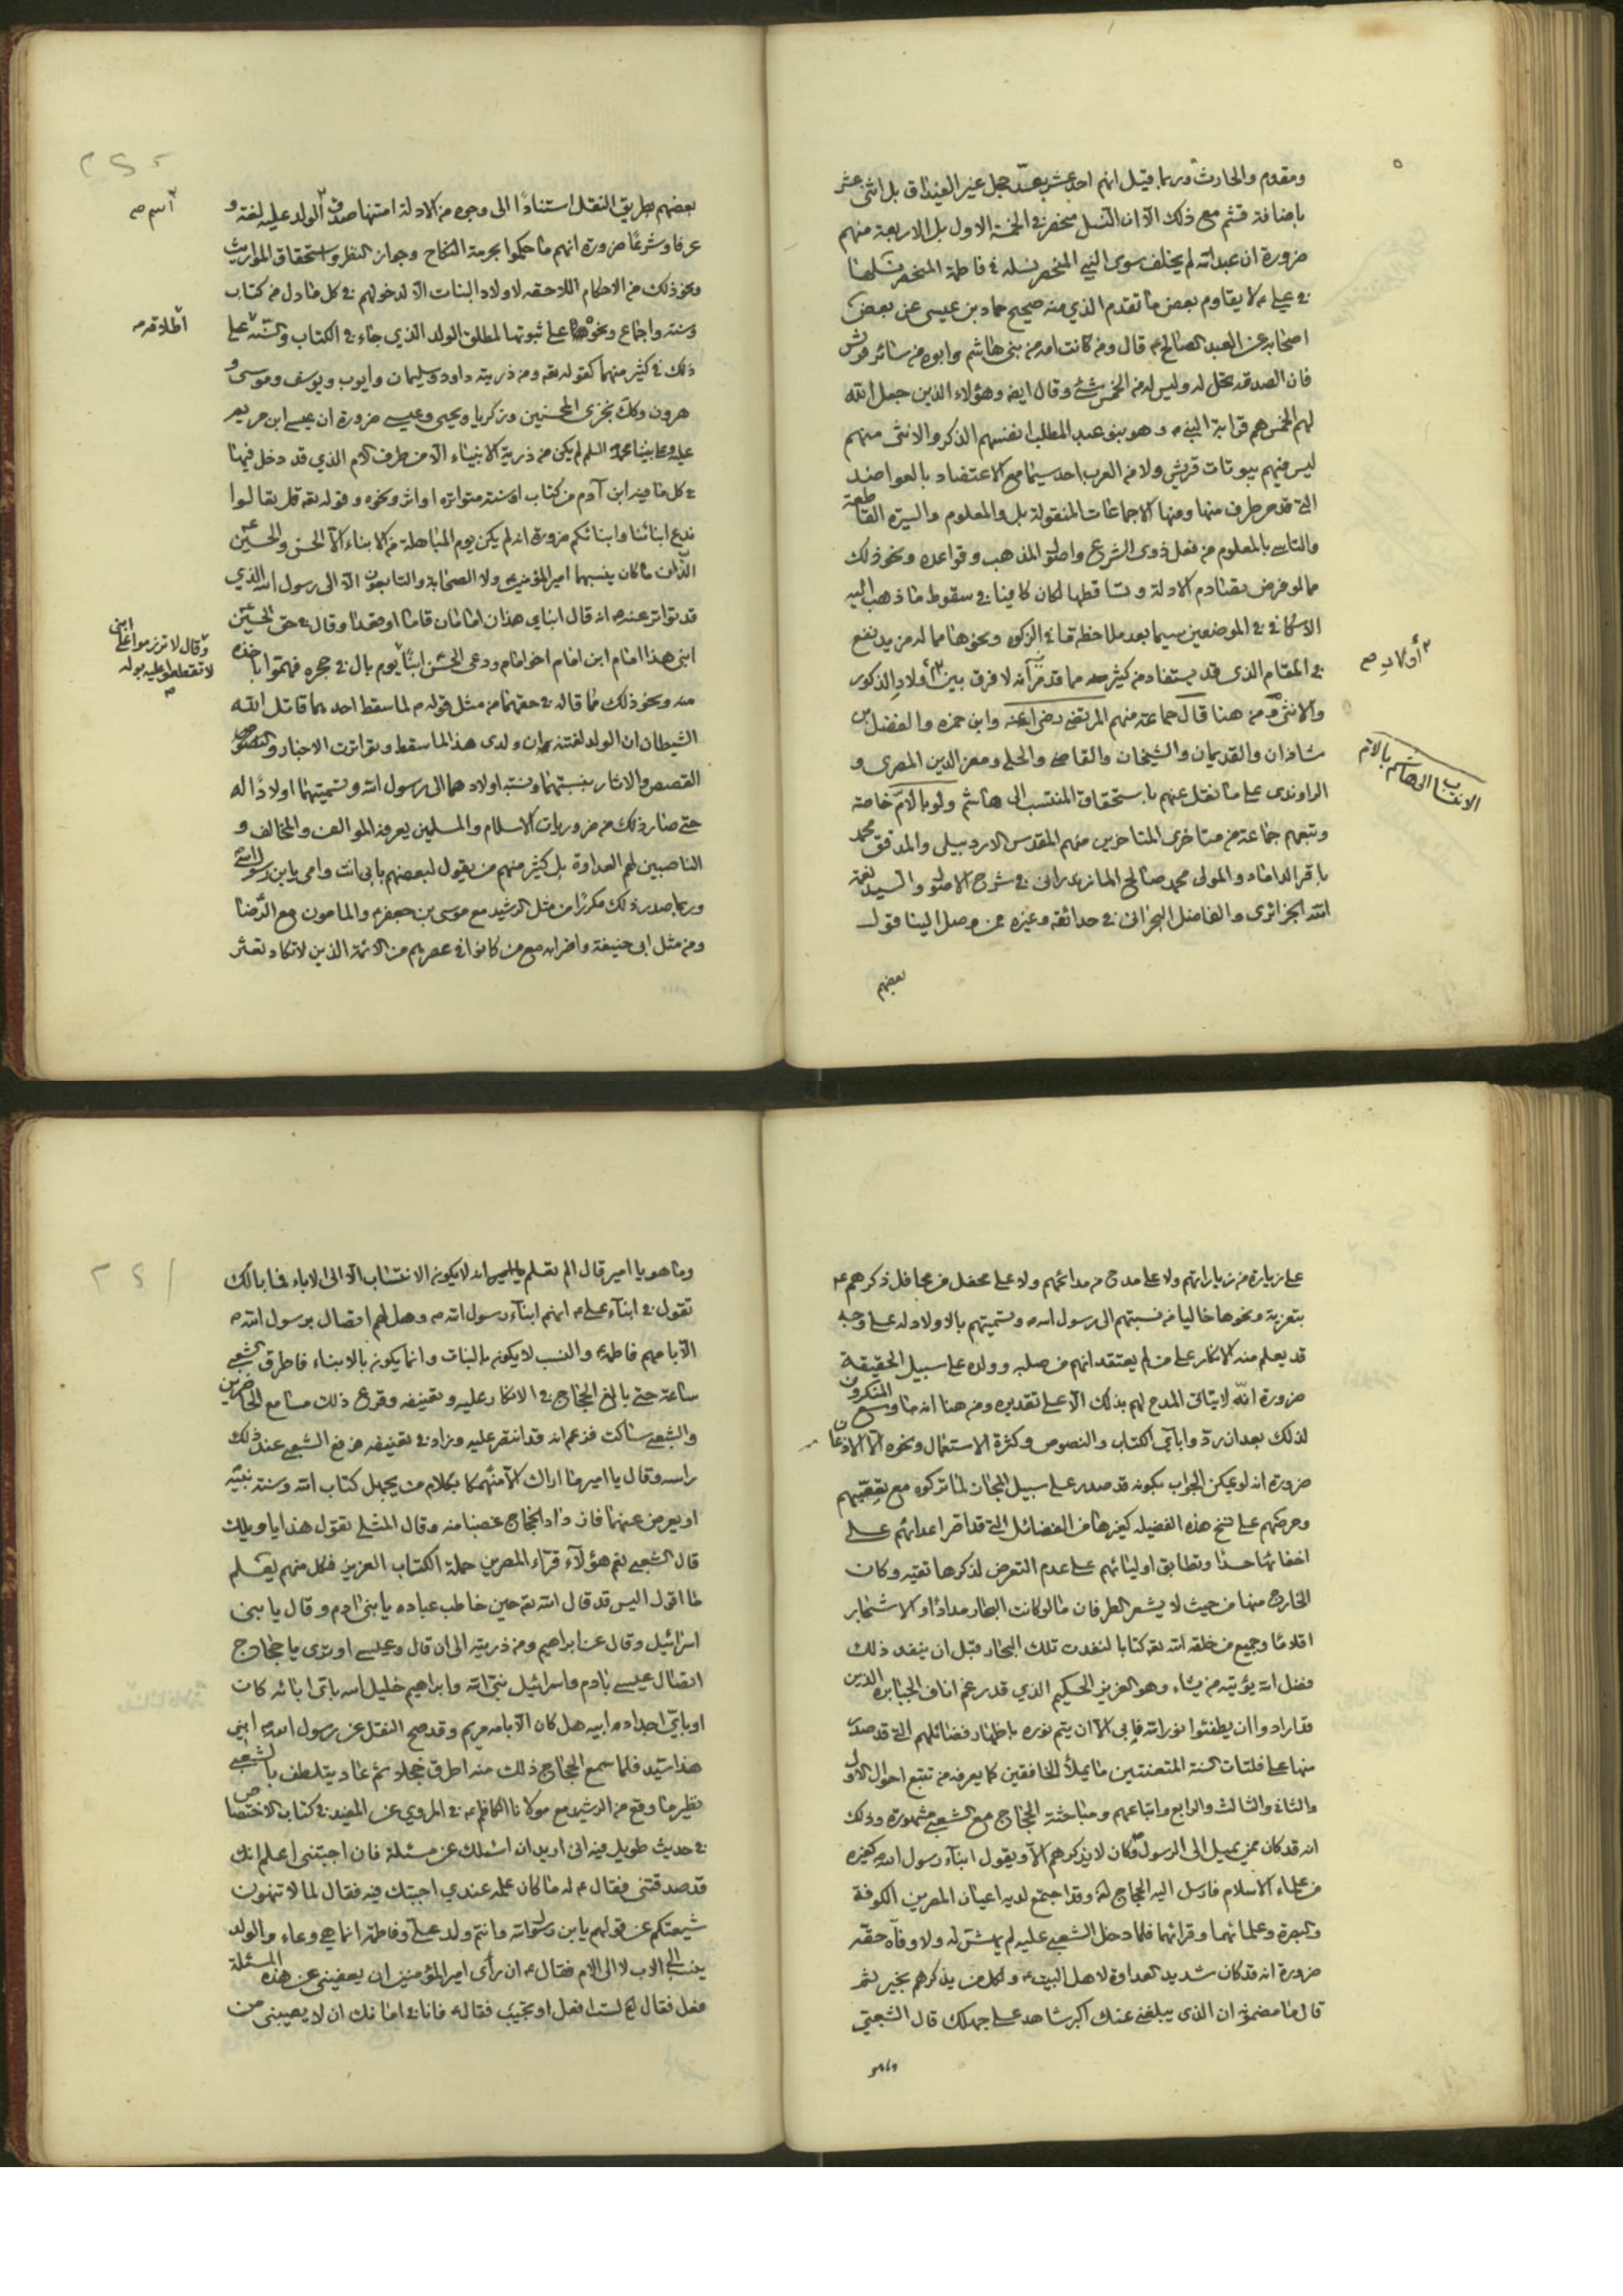 ومقوم والحارث وربما قيل انهم احد عشر بعد جحل غير الغيداق بل اثنى عشر
باضافة قثم مع ذلك الا ان النسل منحصر في الخمسة الاول بل الاربعة منهم
ضرورة ان عبدالله لم يخلف سوى النبي المنحصر نسله في فاطمة المنحصر نسلها
في علي لا يقاوم بعض ما تقدم الذي منه صحيح حماد بن عيسى عن بعض
اصحابه عن العبد الصالح قال ومن كانت امه من بني هاشم وابوه من سائر قريش
فان الصدقة تحل له وليس له من الخمس شئ وقال ايضا وهؤلاء الذين جعل الله
لهم الخمس هم قرابة النبي وهو بنو عبد المطلب انفسهم الذكر والانثى منهم
ليس فيهم بيوتات قريش ولا من العرب احد سيما مع الاعتضاد بالعواضد
التي قد مر طرف منها ومنها الاجماعات المنقولة بل والمعلوم والسيرة القاطعة
والتاسي بالمعلوم من فعل ذوى الشرع واصول المذهب وقواعده ونحو ذلك
مما لو فرض تصادم الادلة وتساقطها لكان كافيا في سقوط ما ذهب اليه
الاسكافي في الموضعين سيما بعد ملاحظة ما في الزكوة ونحوها مما له مزيد نفع
في المقام الذى قد يستفاد من كثير مما قد مر انه لا فرق بين اولاد الذكور
اولاد
والانثى ومن هنا قال جماعة منهم المرتضى رضي الله عنه وابن حمزه والفضل بن
شاذان والقديمان والشيخان والقاضي والحلي ومعز الدين المصرى و
الانتساب الى هاشم بالام
الراوندى على ما نقل عنهم باستحقاق المنتسب الى هاشم ولو بالام خاصة
وتبعهم جماعة من متاخرى المتاخرين منهم المقدس الاردبيلى والمدقق محمد
باقر الداماد والمولى محمد صالح المازندرانى في شرح الاصول والسيد نعمة
الله الجزائرى والفاضل البحرانى في حدائقه وغيره ممن وصل الينا قول
بعضهم
بعضهم بطريق النقل استنادا الى وجوه من الادلة امتنها صدق الولد عليه لغة و
اسم
عرفا وشرعا ضرورة انهم ما حكموا بحرمة النكاح وجواز النظر واستحقاق المواريث
ونحو ذلك من الاحكام اللاحقه لاولاد البنات الا لدخولهم في كل ما دل من كتاب
وسنة واجماع ونحوها على ثبوتها لمطلق الولد الذي جاء في الكتاب والسنة على
اطلاقه
ذلك في كثير منهما كقوله تعه ومن ذريته داود وسليمان وايوب ويوسف وموسى و
هرون وكذلك نجزى المحسنين وزكريا ويحيى وعيسى ضرورة ان عيسى ابن مريم
عليه وعلى نبينا محمد السلام لم يكن من ذرية الانبياء الا من طرف الام الذي قد دخل فيها
في كل ما فيه ابن آدم من كتاب او سنة متواتره او اثر ونحوه وقوله تعه قل تعالوا
ندع ابنائنا وابنائكم ضرورة انه لم يكن يوم المباهلة من الابناء الا الحسن والحسين
الذان ما كان ينسبهما امير المؤمنين ولا الصحابة والتابعون الا الى رسول الله الذي
قد تواتر عنه انه قال ابناي هذان امامان قاما او قعدا وقال في حق الحسين
ابنى هذا امام ابن امام اخو امام ودعى الحسن ابنا يوم بال في حجره فهموا باخذه
وقال لا تزرموا على ابنى
لا تقطعوا عليه بوله
منه ونحو ذلك مما قاله في حقهما من مثل قوله لما سقط احدهما قاتل الله
الشيطان ان الولد لفتنة ان ولدى هذا لما سقط وتواترت الاخبار والنصوص
القصص والاثار بنسبتهما ونسبة اولادهما الى رسول الله وتسميتهما اولادا له
حتى صار ذلك من ضروريات الاسلام والمسلمين يعرفه الموالف والمخالف و
الناصبين لهم العداوة بل كثير منهم من يقول لبعضهم بابى انت وامى يا بن رسول الله
وربما صدر ذلك مكررا من مثل الرشيد مع موسى بن جعفر والمامون مع الرضا
ومن مثل ابى حنيفة واضرابه مع من كانوا في عصرهم من الائمة الذين لا تكاد تعثر
على زيارة من زياراتهم ولا على مدح من مدائحهم ولا على محفل من محافل ذكرهم
بتعزية ونحوها خاليا من نسبتهم الى رسول الله وتسميتهم بالاولاد له على وجه
قد يعلم منه الانكار على من لم يعتقد انهم من صلبه وولده على سبيل الحقيقة
ضرورة انه لا يتاتى المدح لهم بذلك الا على تقديره ومن هنا انه ما وسع المنكرون
لذلك بعد ان ردوا باي الكتاب والنصوص وكثرة الاستعمال ونحوه الا الاذعان
ضرورة انه لو يمكن الجواب بكونه قد صدر على سبيل المجاز لما تركوه مع تعصبهم
وحرصهم على نسخ هذه الفضيله كغيرها من الفضائل التي قد اصر اعدائهم على
اخفائها حسدا وتطابق اوليائهم على عدم التعرض لذكرها تقيه وكان
الخارج منها من حيث لا يشعر الطرفان ما لو كانت البحار مدادا والاشجار
اقلاما وجميع من خلقه الله تعه كتابا لنفدت تلك البحار قبل ان ينفد ذلك
وفضل الله يؤتيه من يشاء وهو العزيز الحكيم الذي قد رغم اناف الجبابره الذين
قد ارادوا ان يطفئوا نور الله فابى الا ان يتم نوره باظهار فضائلهم التي قد صدر
منها على فلتات السنة المتعنتين ما يملأ الخافقين كما يعرفه من تتبع احوال الاول
والثانى والثالث والرابع واتباعهم ومباحثة الحجاج مع الشعبي مشهورة وذلك
انه قد كان ممن يميل الى ال الرسول وكان لا يذكرهم الا ويقول ابناء رسول الله كغيره
من علماء الاسلام فارسل اليه الحجاج وقد اجتمع لديه اعيان المصرين الكوفة
والبصرة وعلمائهما وقرائهما فلما دخل الشعبي عليه لم يهش له ولا وفاه حقه
ضرورة انه قد كان شديد العداوة لاهل البيت ولكل من يذكرهم بخير ثم
قال ما مضمونه ان الذى يبلغنى عنك اكبر شاهد على جهلك قال الشعبي
وما هو
وما هو يا امير قال الم تعلم انه لا يكون الانتساب الا الى الاباء فما بالك
تقول في ابناء علي انهم ابناء رسول الله وهل لهم اتصال برسول الله
الا بامهم فاطمة والنسب لا يكون بالبنات وانما يكون بالابناء فاطرق الشعبي
ساعة حتى بالغ الحجاج في الانكار عليه وتعنيفه وقرع ذلك مسامع الحاضرين
والشعبي ساكت فزعم انه قد انتصر عليه وزاد في تعنيفه فرفع الشعبي عند ذلك
راسه وقال يا امير ما اراك الا متكلما بكلام من يجهل كتاب الله وسنة نبيه
او يعرض عنهما فازداد الحجاج غضبا منه وقال المثلى تقول هذا يا ويلك
قال الشعبي نعم هؤلاء قراء المصرين حملة الكتاب العزيز فكل منهم يعلم
ما اقول اليس قد قال الله تعه حين خاطب عباده يا بنى ادم وقال يا بنى
اسرائيل وقال عن ابراهيم ومن ذريته الى ان قال وعيسى اوترى يا حجاج
اتصال عيسى بادم واسرائيل نبي الله وابراهيم خليل الله باى ابائه كان
او باي اجداد ابيه هل كان الا بامه مريم وقد صح النقل عن رسول الله ابنى
هذا سيد فلما سمع الحجاج ذلك منه اطرق خجلا ثم عاد يتلطف بالشعبي
نظير ما وقع من الرشيد مع مولانا الكاظم في المروي عن المفيد في كتاب الاختصاص
في حديث طويل فيه انى اريد ان اسئلك عن مسئلة فان اجبتنى اعلم انك
قد صدقتنى فقال له ما كان علمه عندي اجبتك فيه فقال لما لا تنهون
شيعتكم عن قولهم يا بن رسول الله وانتم ولد علي وفاطمة انما هي وعاء والولد
ينسب الى الاب لا الى الام فقال ان رأى امير المؤمنين ان يعفينى عن هذه المسئلة
فعل فقال لست افعل او تجيب فقال فانا في امانك ان لا يصيبنى من